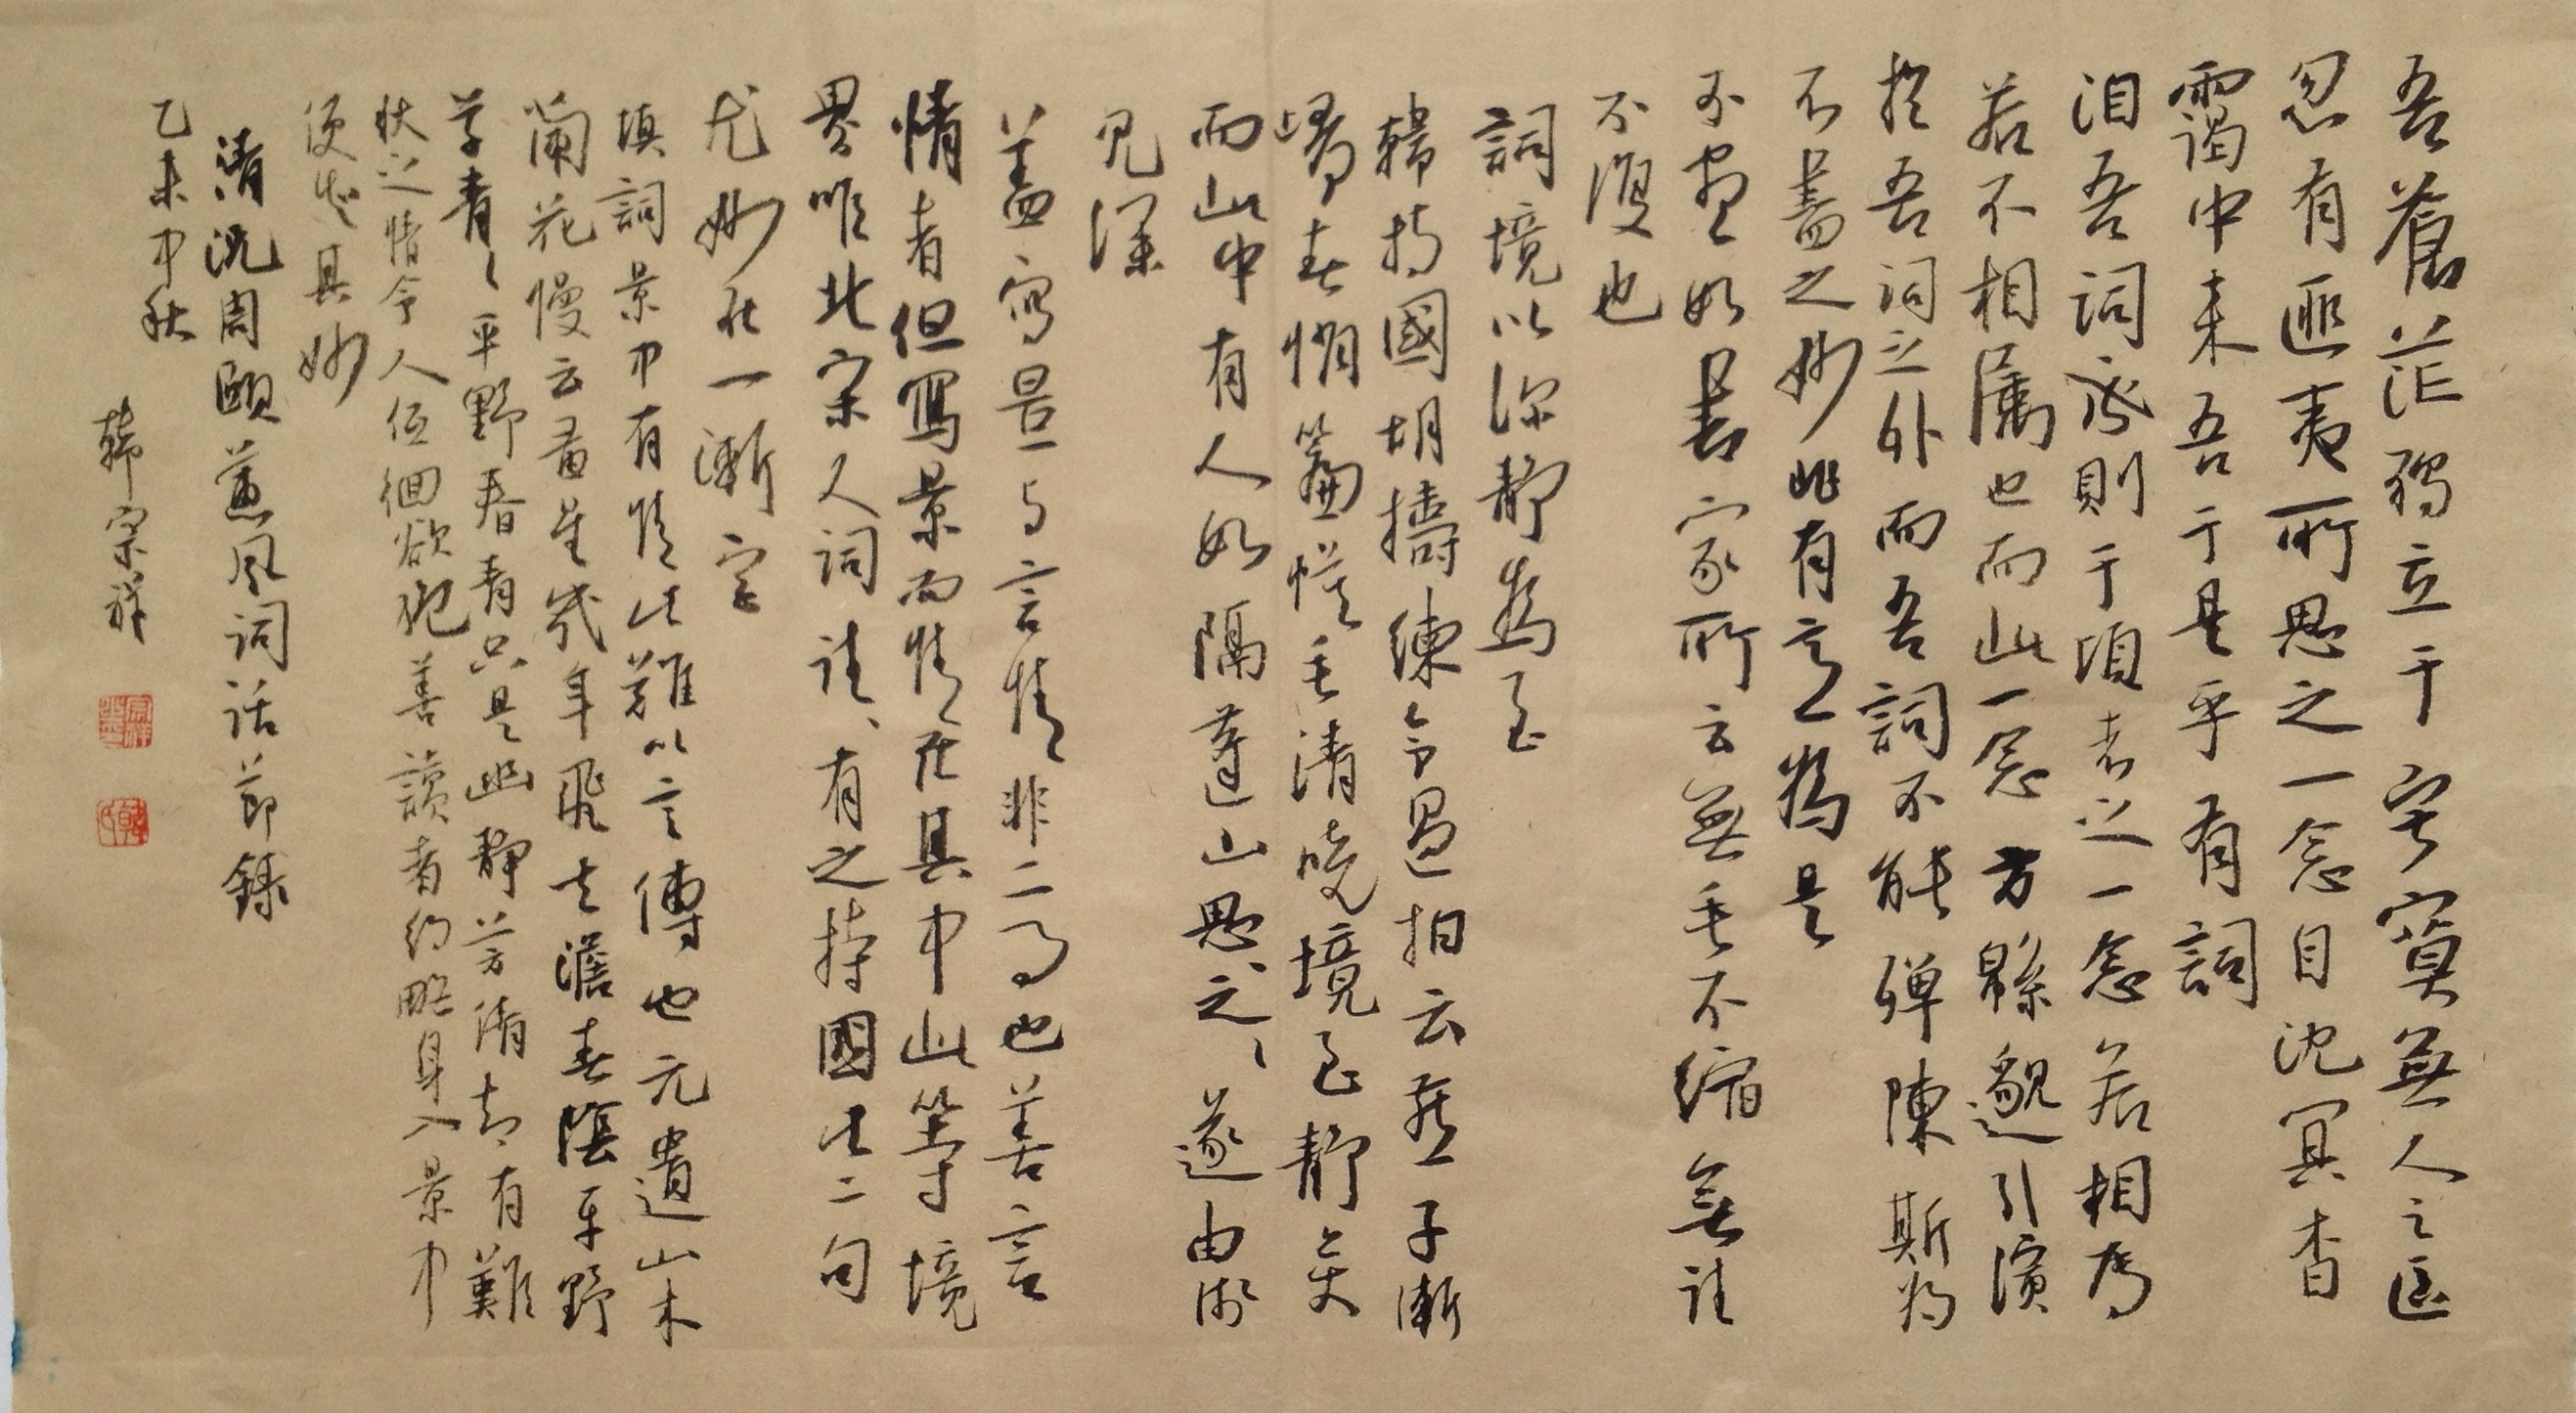 吾蒼茫獨立于寂寞無人之區
忽有匪夷所思之一念自沈冥杳
靄中来吾于是乎有詞
洎吾詞成則于頃者之一念若相属
若不相属也而此一念方緜邈引演
於吾詞之外而吾詞不能殫陳斯為
不盡之妙非有意為是
不盡如書家所云無垂不縮無往
不復也
詞境以深靜為至
韓持國胡擣練令過拍云燕子漸
歸春悄簾幙垂清曉境至靜矣
而此中有人如隔蓬山思、之、遂由淺
見深
蓋寫景与言情非二事也善言
情者但寫景而情在其中此等境
界唯北宋人詞往、有之持國此二句
尤妙在一漸字
填詞景中有情此難以言傳也元遺山木
蘭花慢云黃星幾年飛去澹春陰平野
草青、平野春青只是幽靜芳清却有難
狀之情令人低徊欲絕善讀者約略身入景中
便知其妙
清況周頤蕙風詞話節錄
乙未中秋
韓宗祥